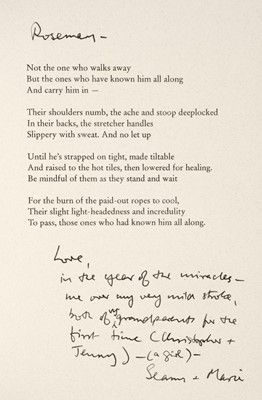 Rosemary —
Not the one who walks away
But the ones who have known him all along
And carry him in —
Their shoulders numb, the ache and stoop deeplocked
In their backs, the stretcher handles
Slippery with sweat. And no let up
Until he's strapped on tight, made tiltable
And raised to the hot tiles, then lowered for healing.
Be mindful of them as they stand and wait
For the burn of the paid-out ropes to cool,
Their slight light-headedness and incredulity
To pass, those ones who had known him all along.
Love,
in the year of the miracles —
me over my very mild stroke,
both of us grandparents for the
first time (Christopher +
Jenny) — (a girl) —
Seamus + Marie